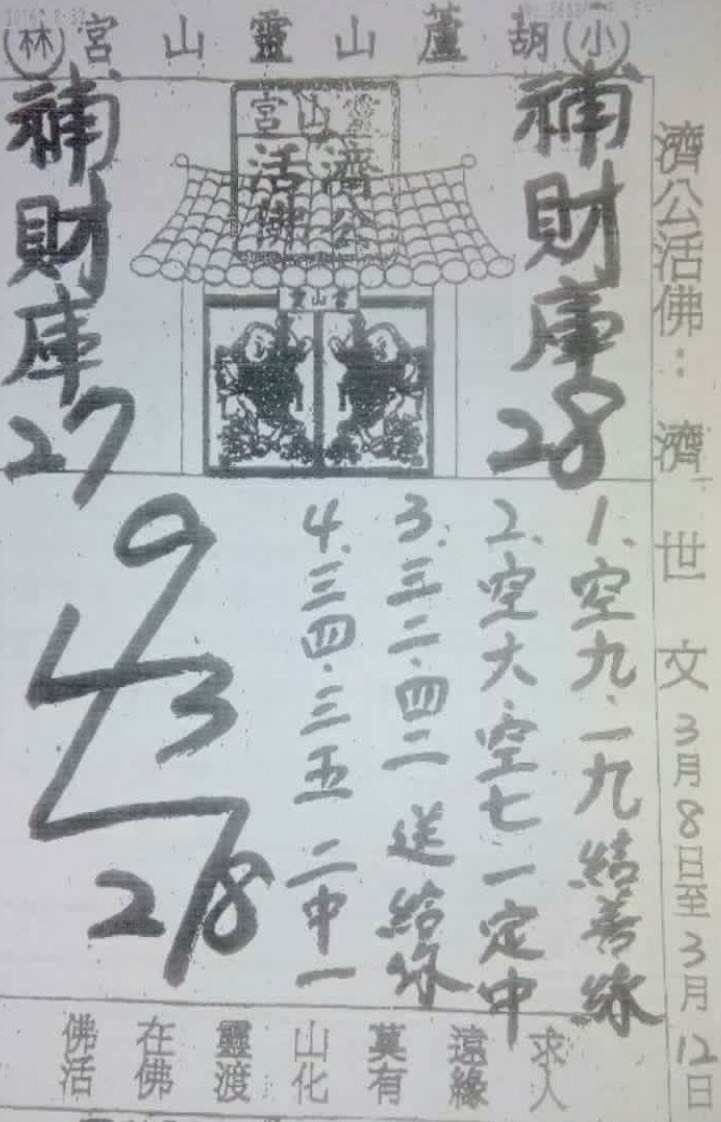 小胡蘆山靈山宮林
濟公活佛：濟世文 3月8日至3月12日
補財庫28
靈山宮
濟公
活佛
靈山宮
補財庫27
1.空九.一九結善緣
2.空大.空七一定中
3.三二.四二送給你
4.三四.三五二中一
9
3
28
求遠莫山靈在佛
人緣有化渡佛活